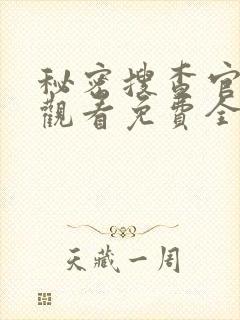 秘密搜查官
觀看免費全
天藏一周